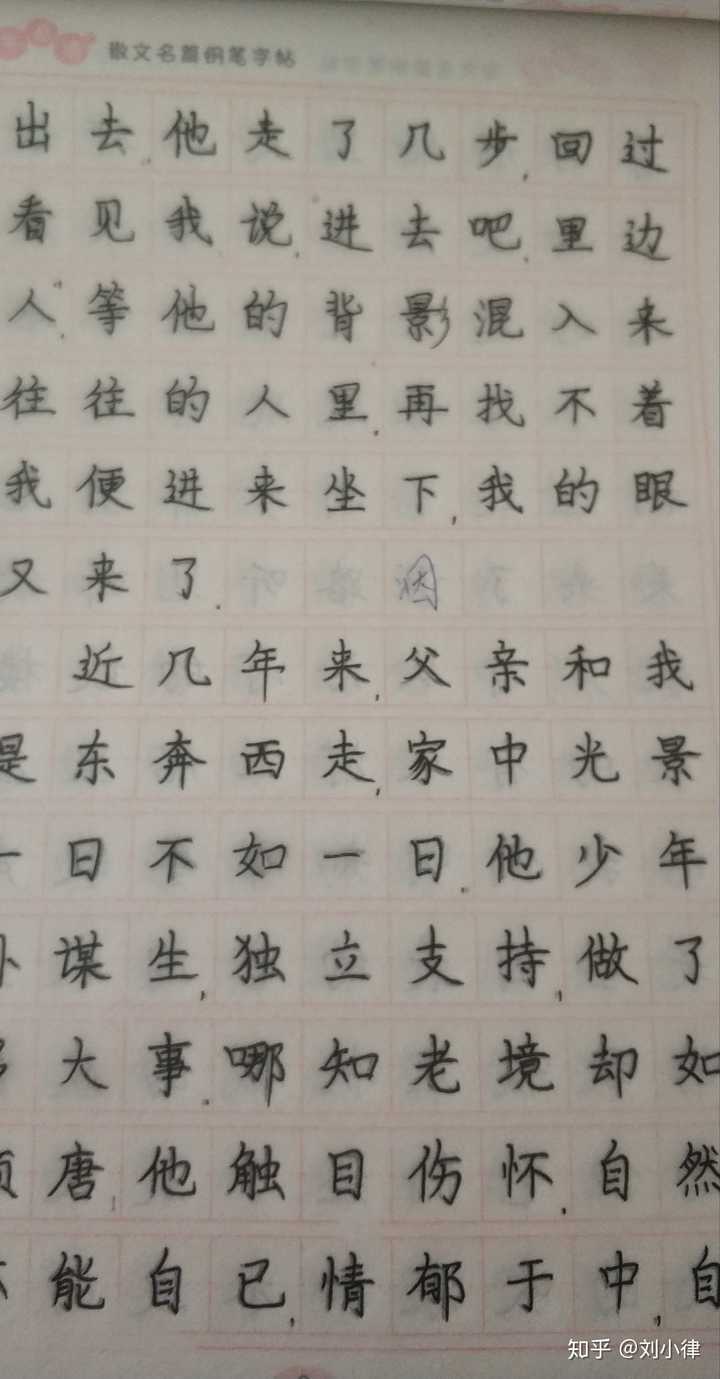 散文名篇钢笔字帖
出去.他走了几步,回过
看见我说.进去吧.里边
人.等他的背影混入来
往往的人里.再找不着
我便进来坐下,我的眼
又来了.
近几年来,父亲和我
是东奔西走,家中光景
一日不如一日.他少年
外谋生,独立支持,做了
大事.哪知老境却如
颓唐,他触目伤怀.自然
能自已,情郁于中,自
知乎 @刘小律